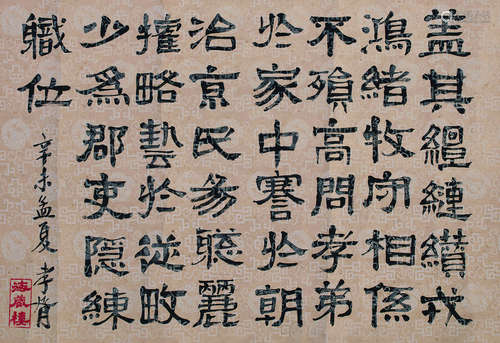 蓋其繵縺纘戎
鴻緒牧守相係
不殞高問孝弟
於家中謇於朝
治京氏易聰麗
權略藝於從畋
少為郡吏隱練
職位
辛未孟夏 孝胥
海藏樓